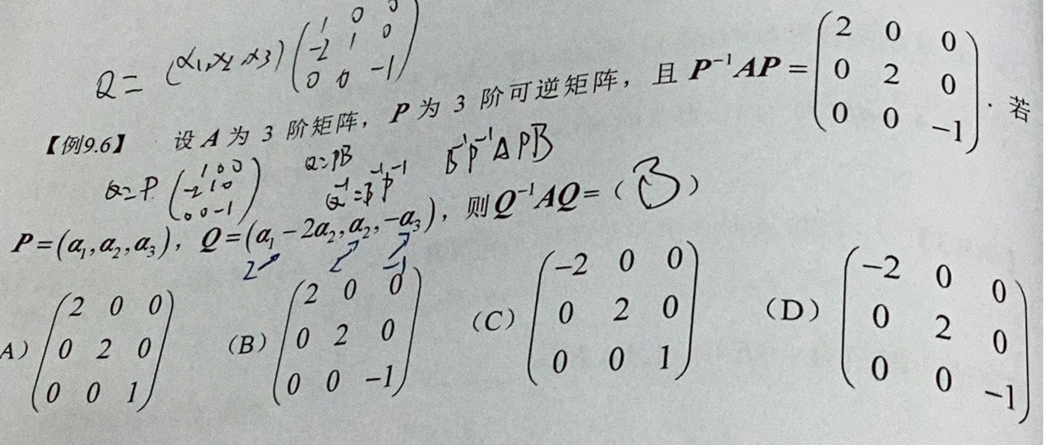 Q = (α1, α2, α3) (1 0 0; -2 1 0; 0 0 -1)
【例9.6】 设 A 为 3 阶矩阵，P 为 3 阶可逆矩阵，且 P⁻¹AP = (2 0 0; 0 2 0; 0 0 -1). 若
Q=P (1 0 0; -2 1 0; 0 0 -1) Q=PB B⁻¹P⁻¹APB
Q⁻¹=B⁻¹P⁻¹
P=(α₁,α₂,α₃)，Q=(α₁-2α₂,α₂,-α₃)，则 Q⁻¹AQ=（ B ）
2 2 -1
A) (2 0 0; 0 2 0; 0 0 1) (B) (2 0 0; 0 2 0; 0 0 -1) (C) (-2 0 0; 0 2 0; 0 0 1) (D) (-2 0 0; 0 2 0; 0 0 -1)